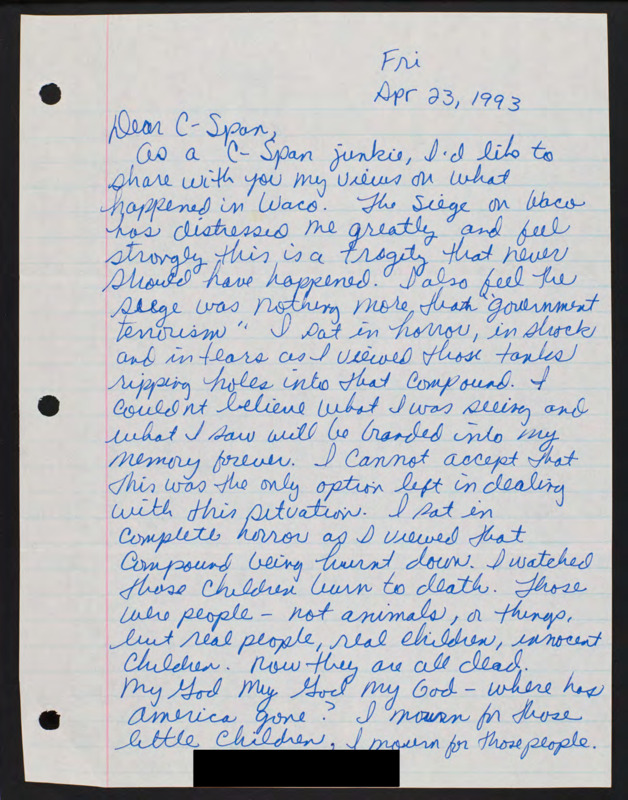 Fri
Apr 23, 1993
Dear C-Span,
As a C-Span junkie, I'd like to
share with you my views on what
happened in Waco. The siege on Waco
has distressed me greatly and feel
strongly this is a tragity that never
should have happened. I also feel the
siege was nothing more than "government
terrorism" I sat in horror, in shock
and in tears as I viewed those tanks
ripping holes into that compound. I
couldn't believe what I was seeing and
what I saw will be branded into my
memory forever. I cannot accept that
this was the only option left in dealing
with this situation. I sat in
complete horror as I viewed that
compound being burnt down. I watched
those children burn to death. Those
were people - not animals, or things,
but real people, real children, innocent
children. Now they are all dead.
My God My God My God - where has
America gone? I mourn for those
little children, I mourn for those people.